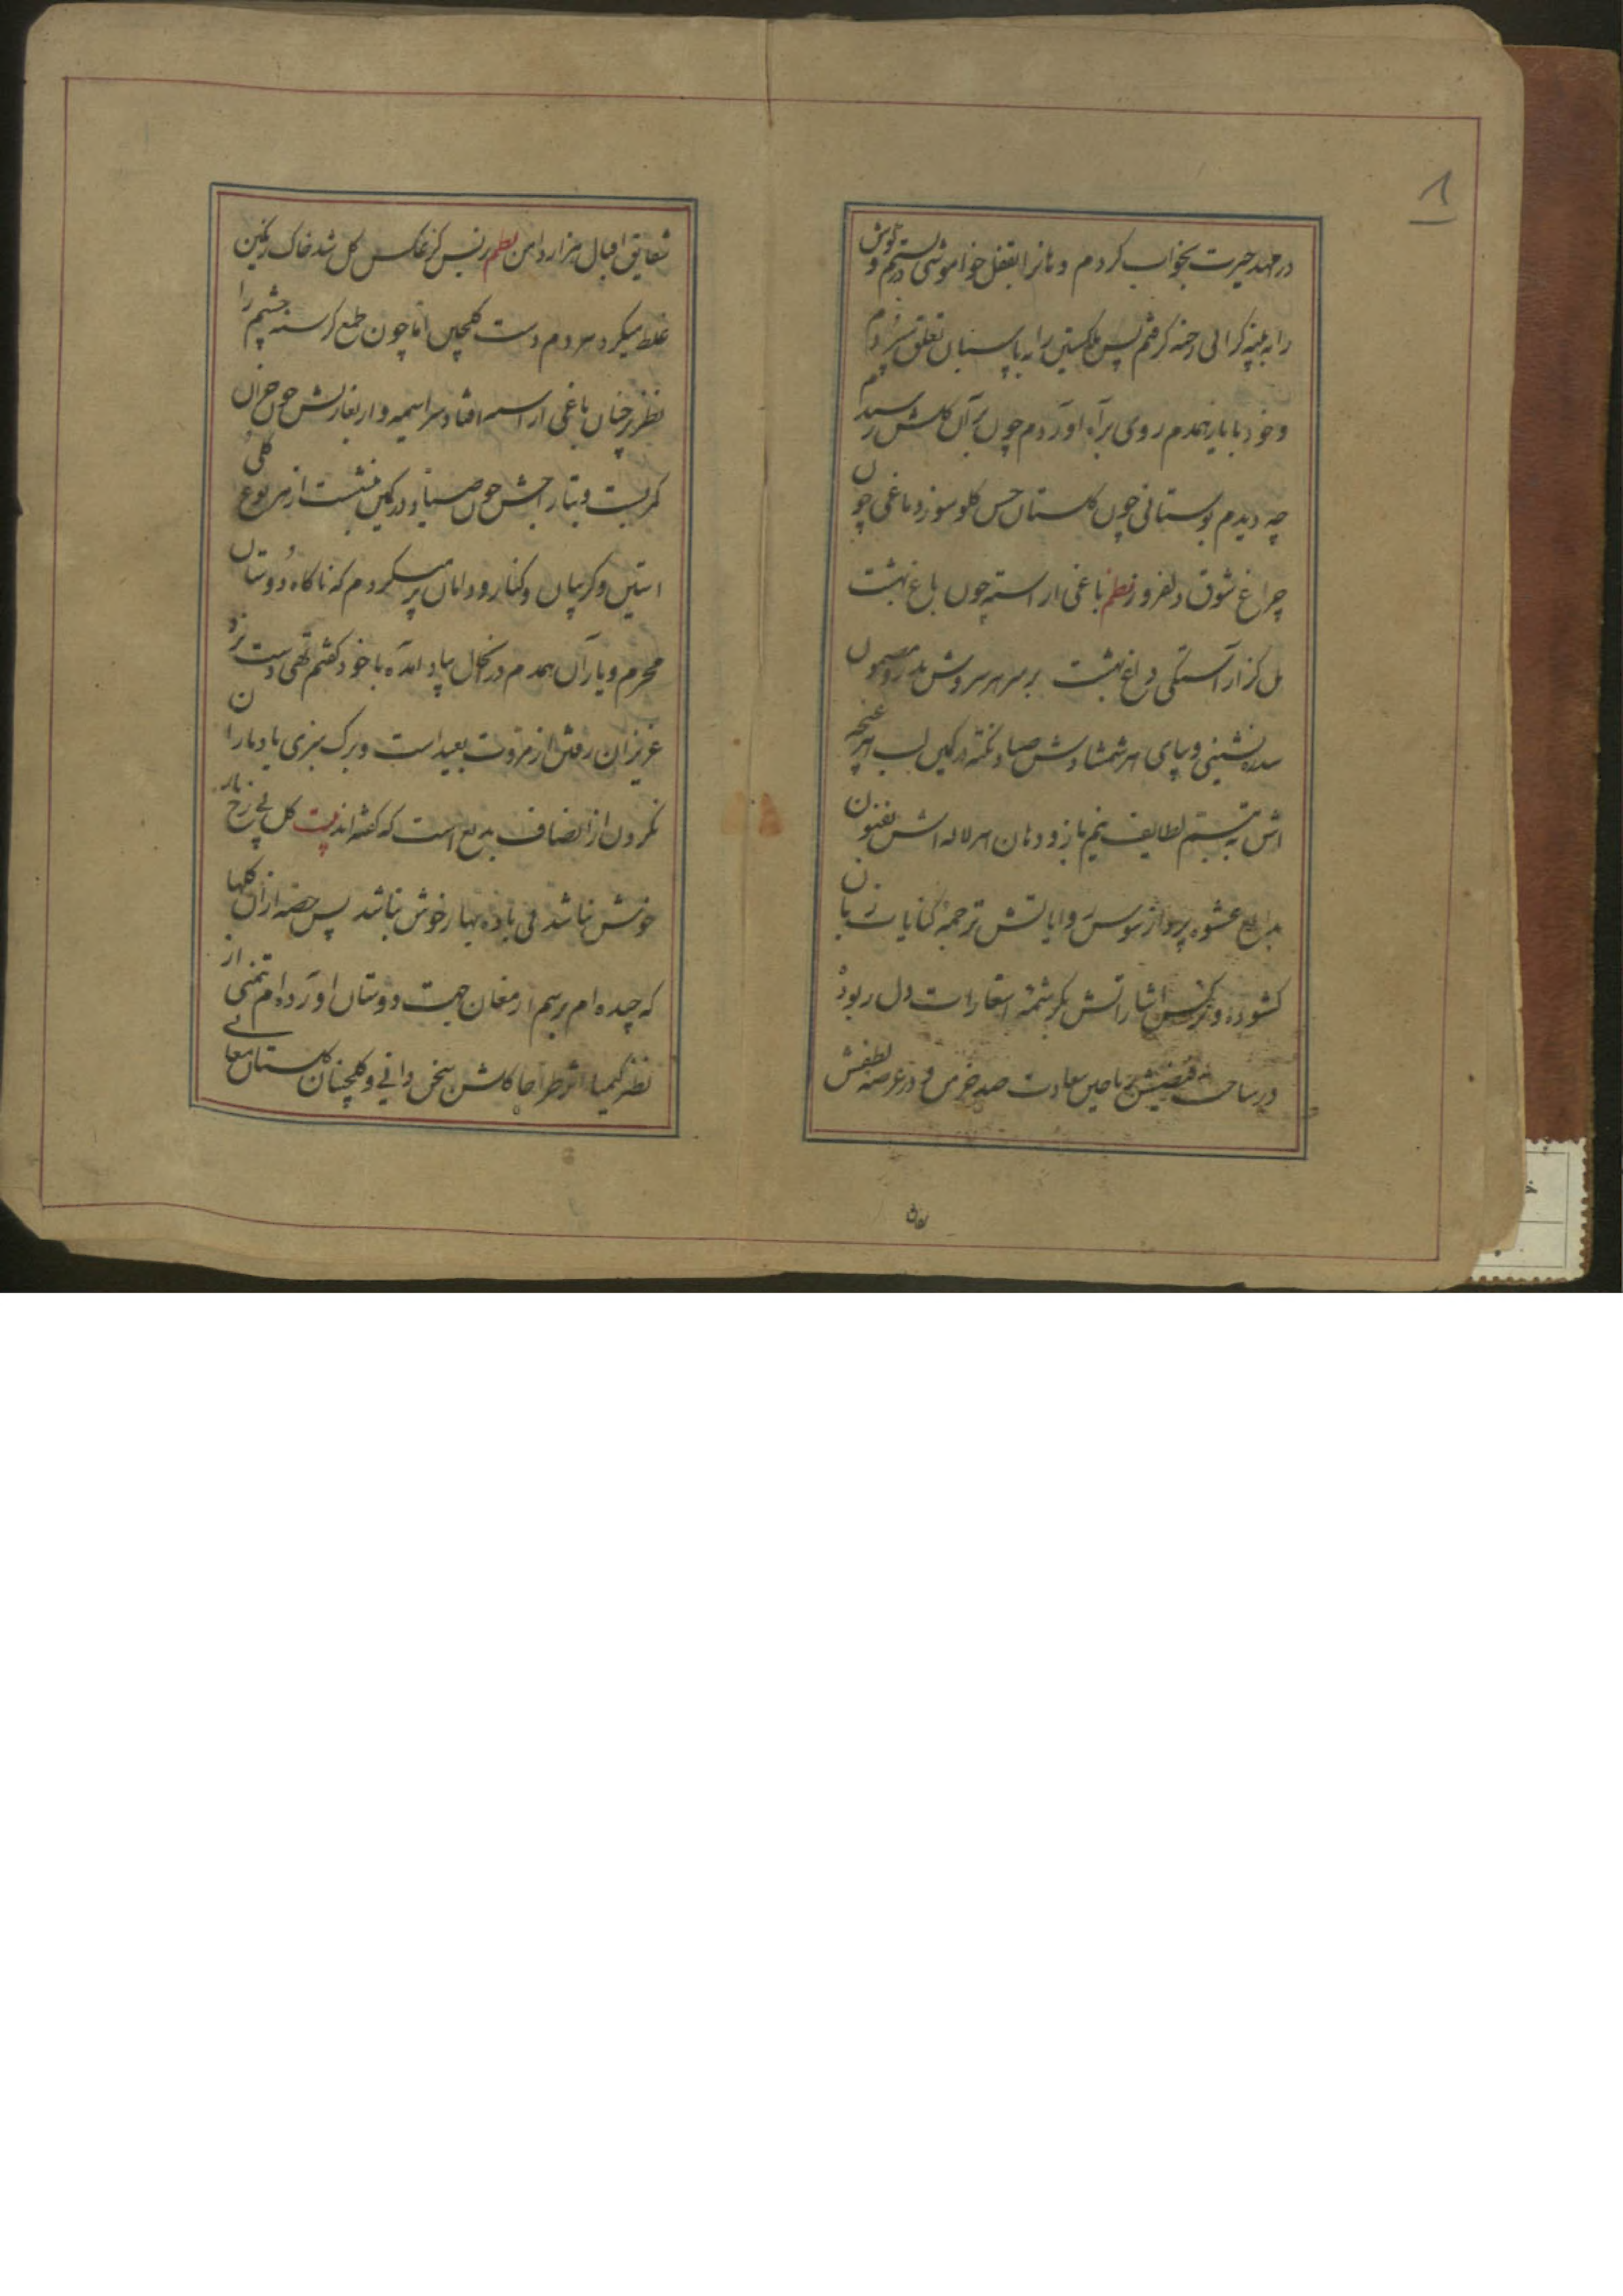 در مهد حیرت بخواب کردم و دهانرا بقفل خواموشی بستم و در گوش
را به پنبه کرانی رخنه کرفتم پس ملک تن را به پاسبان تعلق سپردم
و خود با یار همدم روی براه آوردم چون بر آن کلشن رسیدم
چه دیدم بوستانی چون کلستان حسن کلو سوز و باغی چون
چراغ شوق دلفروز نظم باغی اراسته چون باغ بهشت
بل کز آراستکی داغ بهشت بر سر هر سروش
سدره نشینی و پای هر شمشادش صیاد نکته در کمین لب هر غنچه
اش به تبسم لطایف نیم باز و دهان هر لاله اش بفنون
بدایع عشوه پرداز سوسن روایاتش ترجمه کنایات زبان
کشوده و نرکس اشاراتش بکرشمه استعارات دل ربوده
در ساحت فیضش ریاحین سعادت صد خرمن و در عرصه لطفش
شقایق اقبال هزار دامن نظم زبس کز عکس کل شد خاک رنکین
غلط میکرد هر دم دست کلچین اما چون طمع کرسنه چشم را
نظر بر چنان باغی اراسته افتاد سراسیمه وار بغارتش چون خزان
کمر بست و بتاراجش چون صیاد در کمین نشست از هر نوع کلی
استین و کریبان و کنار و دامان پر میکردم که ناکاه دوستان
محرم و یاران همدم در آنحال بیاد آمده با خود کفتم تهی دست نزد
عزیزان رفتن از مروت بعید است و برک سبزی یاد یاران
نکردن از انصاف بدیع است که کفته اند بیت کل بی رخ یار
خوش نباشد بی باده بهار خوش نباشد پس حصه ازان کلها
که چیده ام برسم ارمغان جهت دوستان آورده ام تمنی از
نظر کیمیا اثر کلشن سخن دانی و کلچینان کلستان معانی